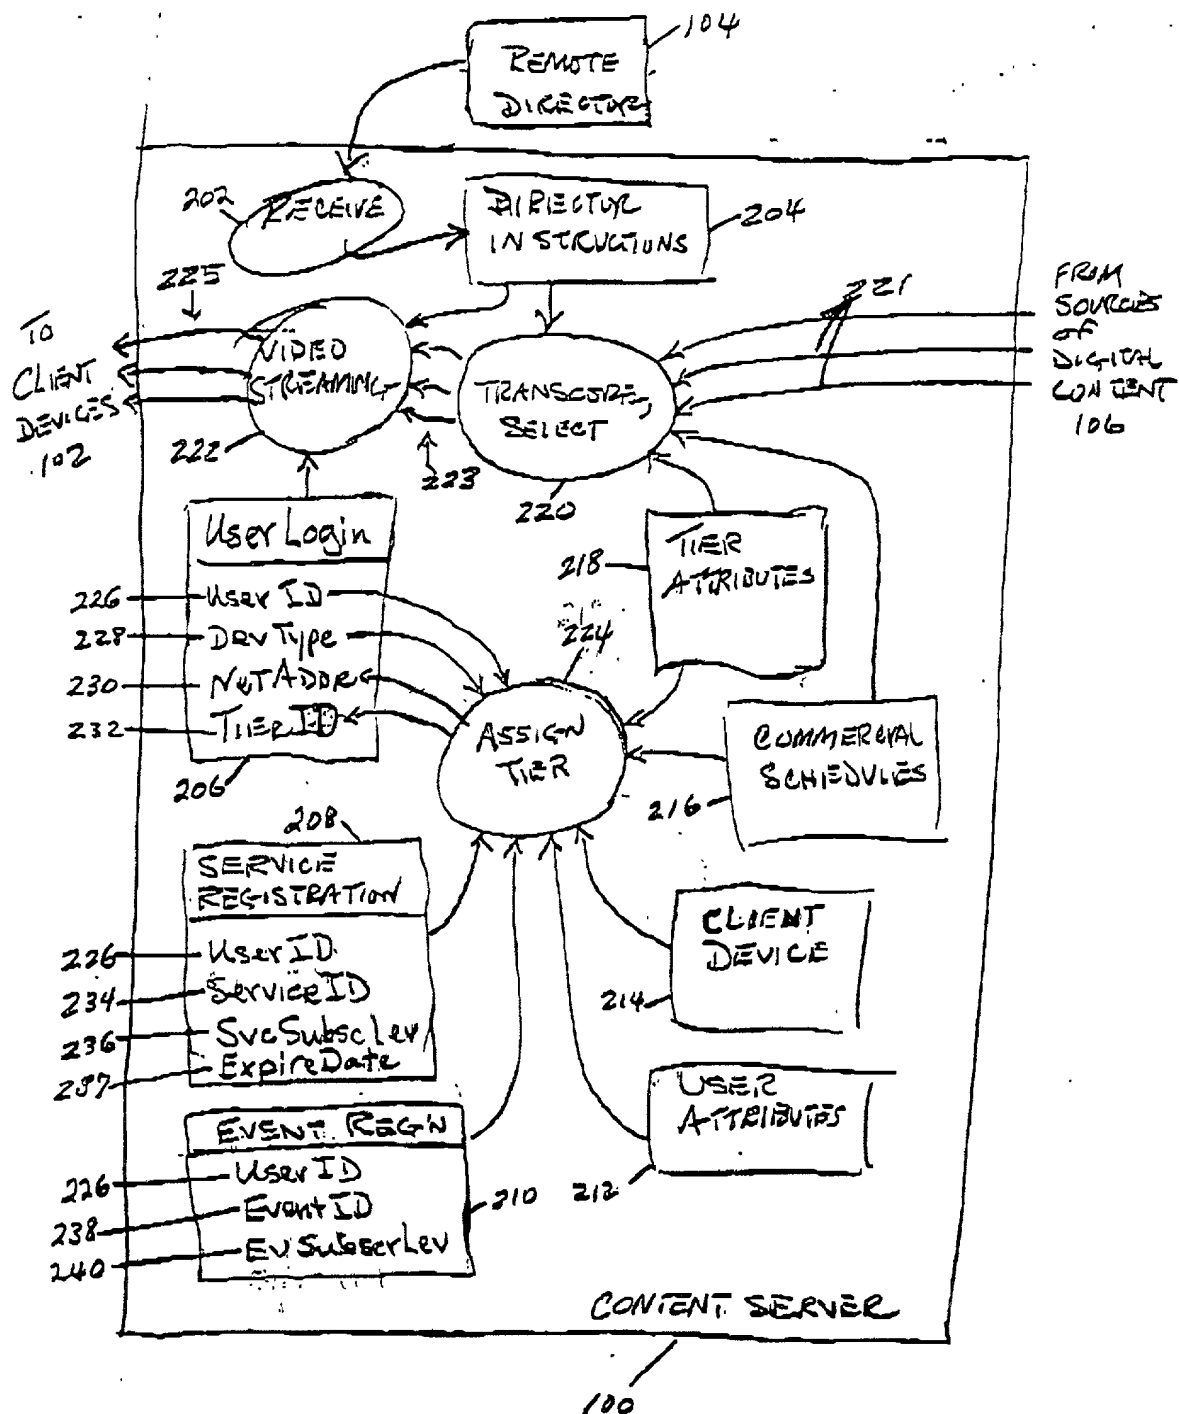 104
REMOTE
DIRECTOR
202
RECEIVE
DIRECTOR
INSTRUCTIONS
204
225
221
FROM
SOURCES
OF
DIGITAL
CONTENT
106
TO
CLIENT
DEVICES
102
VIDEO
STREAMING
222
TRANSCODE,
SELECT
223
220
User Login
226
User ID
228
Dev Type
230
NetAddr
232
TierID
206
218
TIER
ATTRIBUTES
224
ASSIGN
TIER
COMMERCIAL
SCHEDULES
216
208
SERVICE
REGISTRATION
226
UserID
234
ServiceID
236
SvcSubscLev
237
ExpireDate
CLIENT
DEVICE
214
USER
ATTRIBUTES
212
EVENT REG'N
226
UserID
238
EventID
240
EvSubscrLev
210
CONTENT SERVER
100